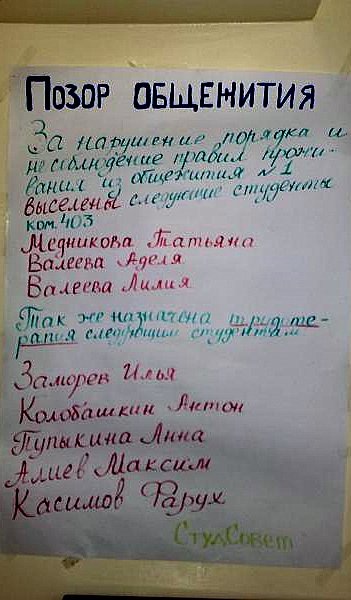 Позор общежития
За нарушение порядка и
несоблюдение правил прожи-
вания из общежития №1
выселены следующие студенты
ком. 403
Медникова Татьяна
Валеева Аделя
Валеева Лилия
Так же назначена трудоте-
рапия следующим студентам
Заморев Илья
Колобашкин Антон
Пупыкина Анна
Алиев Максим
Касимов Фарух
СтудСовет